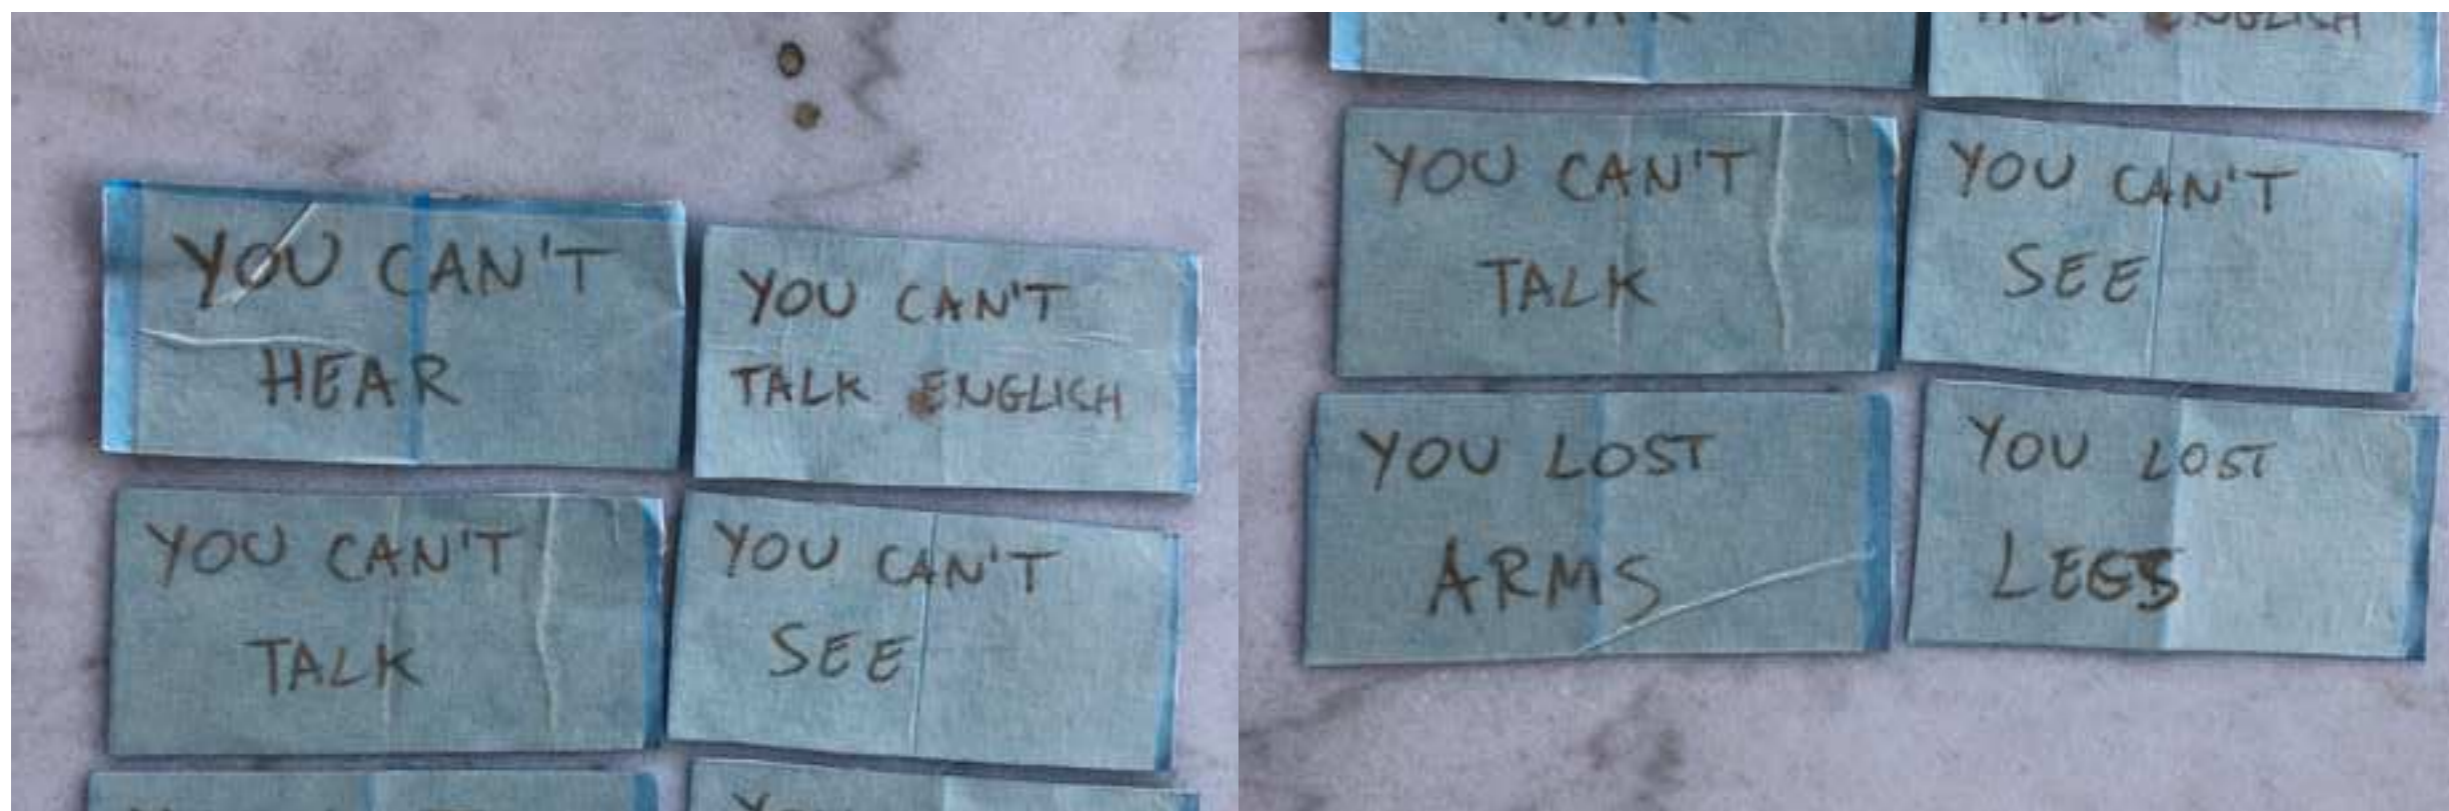 YOU CAN'T
HEAR
YOU CAN'T
TALK ENGLICH
YOU CAN'T
TALK
YOU CAN'T
SEE
YOU
HEAR
TALK ENGLICH
YOU CAN'T
TALK
YOU CAN'T
SEE
YOU LOST
ARMS
YOU LOST
LEGS